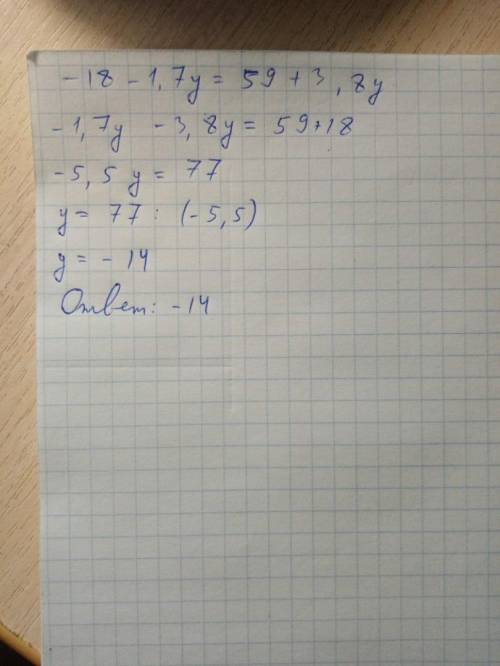 -18 - 1,7y = 59 + 3,8y
-1,7y - 3,8y = 59+18
-5,5y = 77
y = 77 : (-5,5)
y = -14
Ответ: -14